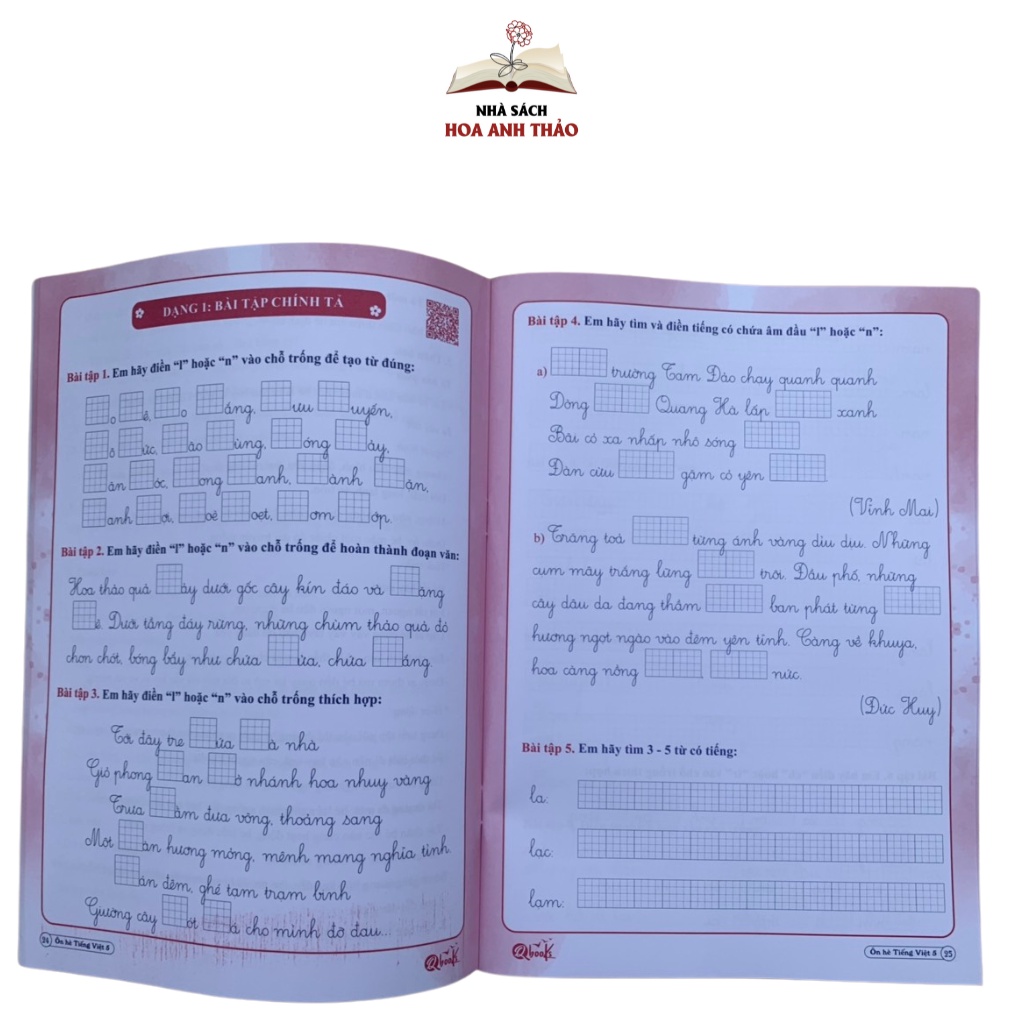 NHÀ SÁCH
HOA ANH THẢO
DẠNG 1: BÀI TẬP CHÍNH TẢ
Bài tập 1. Em hãy điền “l” hoặc “n” vào chỗ trống để tạo từ đúng:
o ê, o áng, ưu uyến,
ô ức, ào ùng, óng ảy,
ân óc, ong anh, ành ặn,
anh ợi, oè oẹt, ơm ớp.
Bài tập 2. Em hãy điền “l” hoặc “n” vào chỗ trống để hoàn thành đoạn văn:
Hoa thảo quả ảy dưới gốc cây kín đáo và ặng
ẽ. Dưới tầng đáy rừng, những chùm thảo quả đỏ
chon chót, bóng bẩy như chứa ửa, chứa ắng.
Bài tập 3. Em hãy điền “l” hoặc “n” vào chỗ trống thích hợp:
Tới đây tre ứa à nhà
Giò phong an ở nhánh hoa nhuỵ vàng
Trưa ằm đưa võng, thoảng sang
Một àn hương mỏng, mênh mang nghĩa tình.
án đêm, ghé tạm trạm binh
Giường cây ót á cho mình đỡ đau...
24 Ôn hè Tiếng Việt 5
Qbook
Bài tập 4. Em hãy tìm và điền tiếng có chứa âm đầu “l” hoặc “n”:
a) trường Tam Đảo chạy quanh quanh
Dòng Quang Hà lấp xanh
Bãi cỏ xa nhấp nhô sóng
Đàn cừu gặm cỏ yên
(Vĩnh Mai)
b) Trăng toả từng ánh vàng dìu dịu. Những
cụm mây trắng lửng trời. Đâu phố, những
cây dâu da đang thầm ban phát từng
hương ngọt ngào vào đêm yên tĩnh. Càng về khuya,
hoa càng nồng , nức.
(Đức Huy)
Bài tập 5. Em hãy tìm 3 - 5 từ có tiếng:
la:
lạc:
lam:
Qbook
Ôn hè Tiếng Việt 5 25